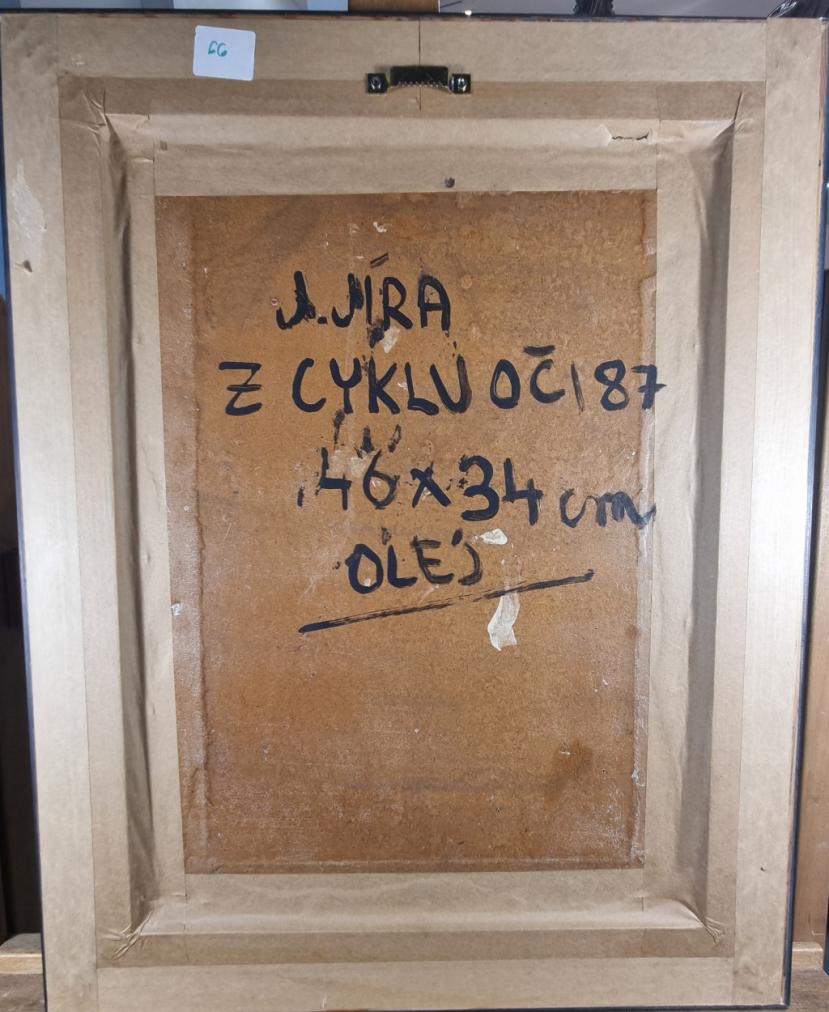 66
J. JÍRA
Z CYKLU OČI 87
46x34 cm
OLEJ